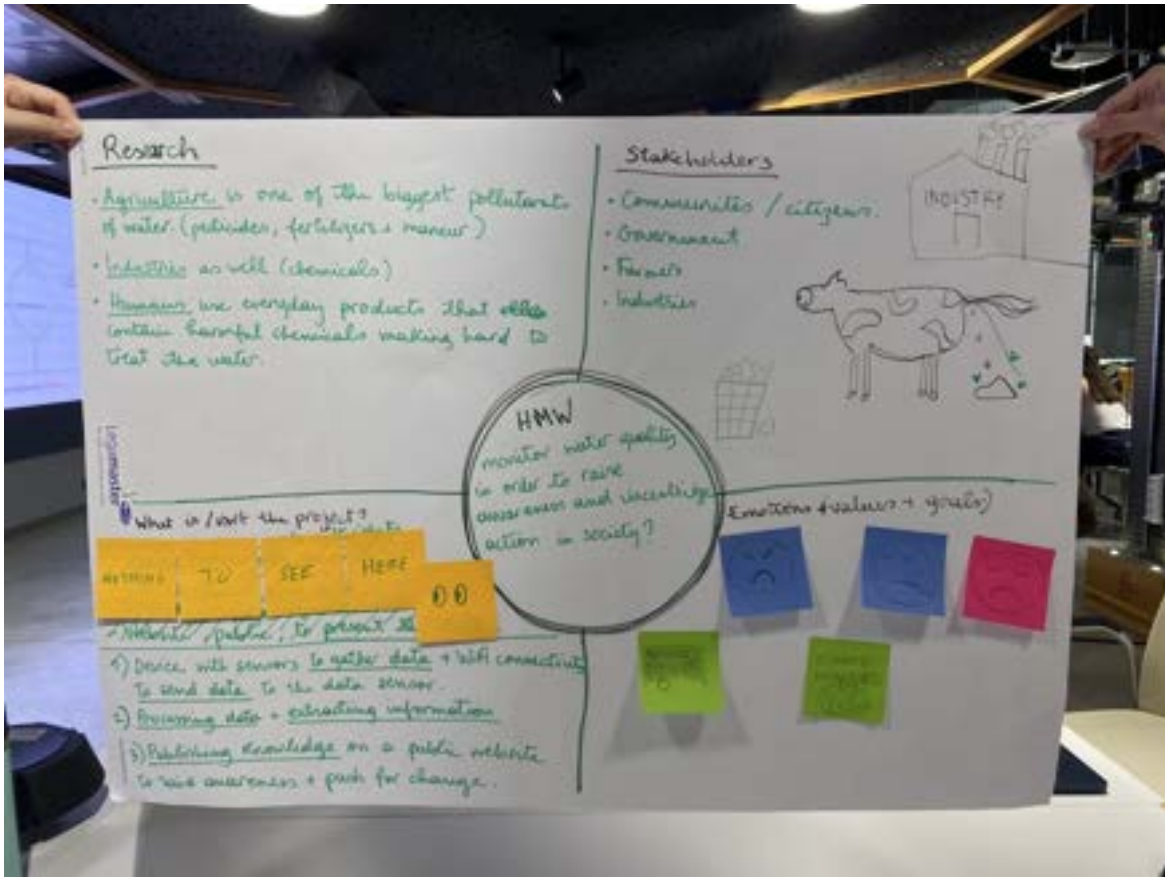 Research
• Agriculture is one of the biggest pollutants
of water (pesticides, fertilizers + maneur)
• Industries as well (chemicals)
• Humans use everyday products that
contain harmful chemicals making hard to
treat the water.
Stakeholders
• Communities / citizens.
• Government
• Farmers
• Industries
INDUSTRY
HMW
monitor water quality
in order to raise
awareness and
action in society?
Legamaster
What is / isn't the project?
NOTHING TO SEE HERE
• Website, public, to present
1) Device with sensors to gather data + Wifi connectivity
to send data to the data sensor.
2) Processing data + extracting information
3) Publishing knowledge on a public website
to raise awareness + push for change.
Emotions (values + goals)